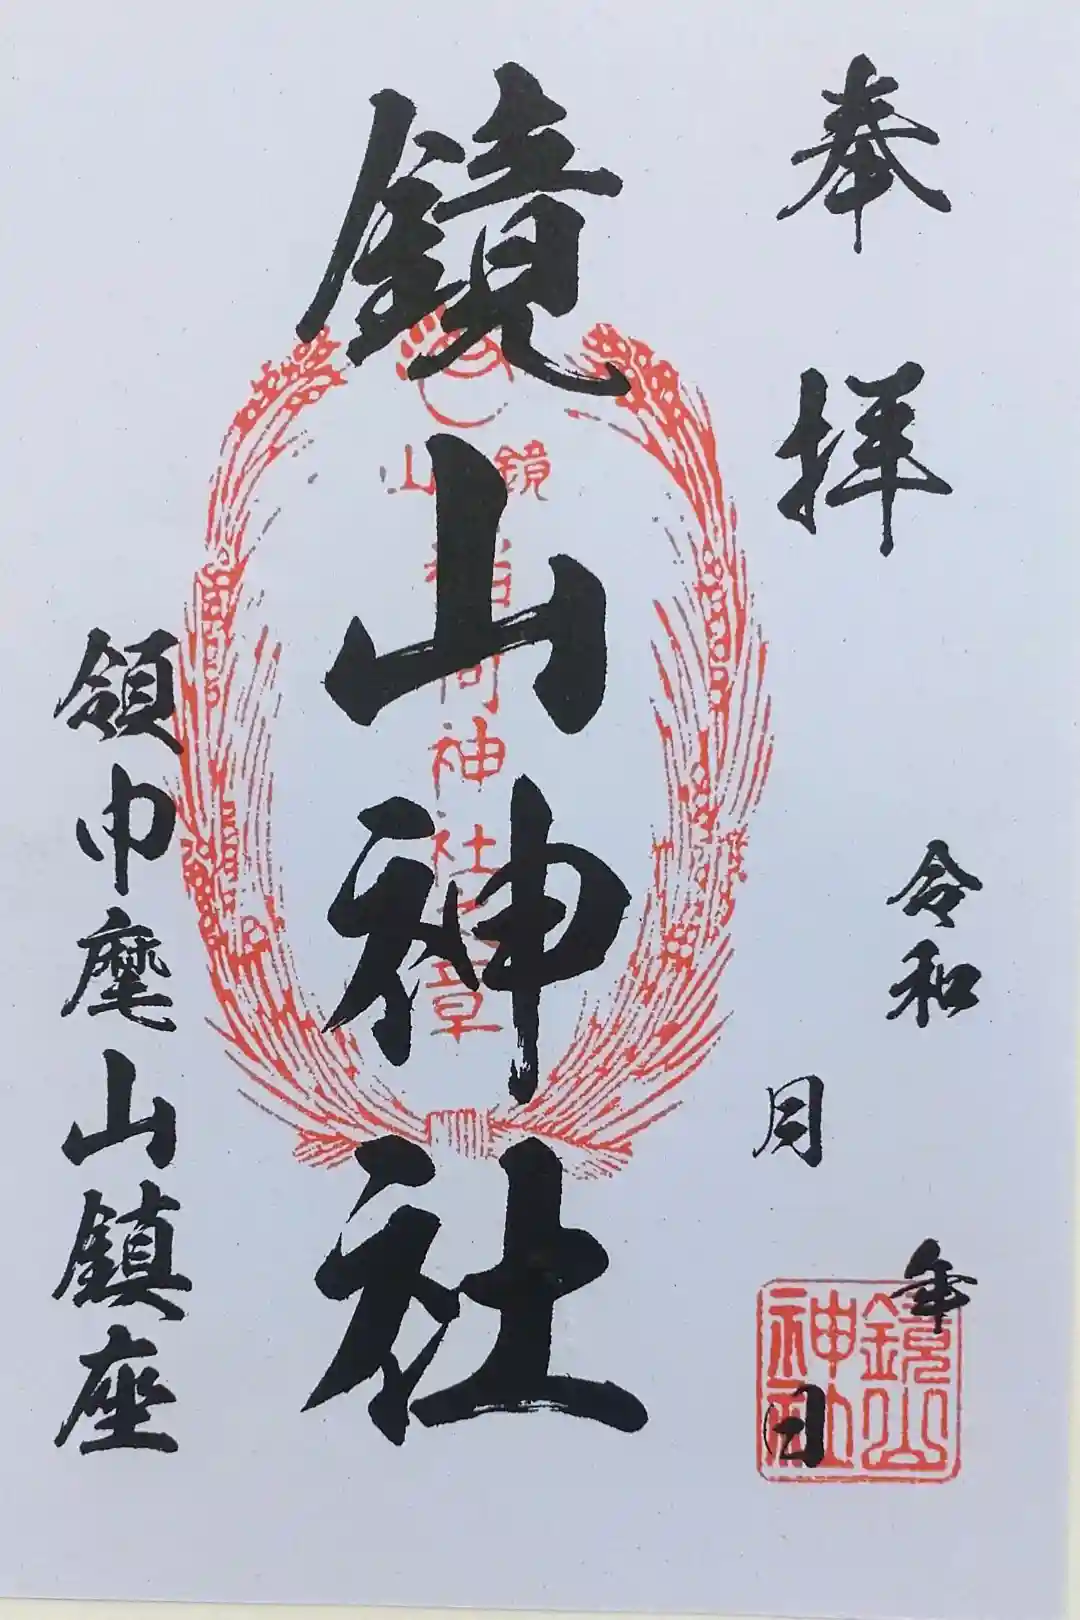 奉拝
令和 年
月 日
鏡山神社
鏡山
稲荷神社之章
領巾麾山鎮座
鏡山
神社